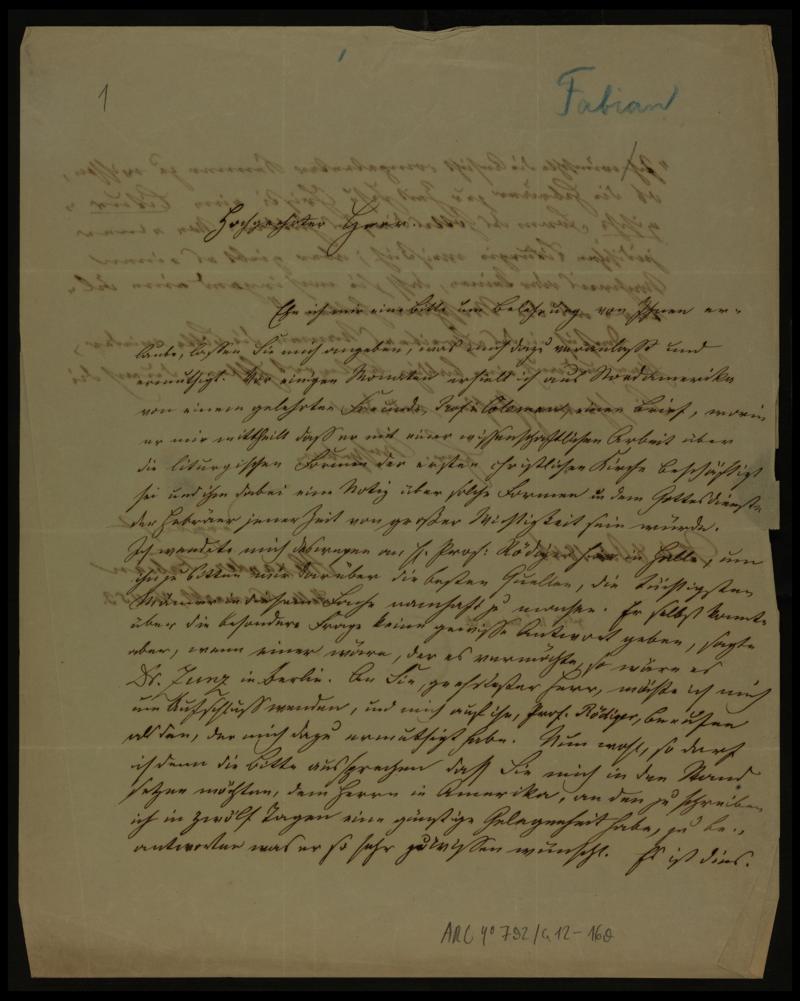 1
Fabian
Hochgeehrter Herr.
Ehe ich mir eine Bitte um Belehrung von Ihnen er-
laube, lassen Sie mich angeben, was mich dazu veranlaßt und
ermuthigt. Vor einigen Monaten erhielt ich aus Nordamerika
von einem gelehrten Freunde, Prof. Coleman, einen Brief, worin
er mir mittheilt dass er mit einer wissenschaftlichen Arbeit über
die liturgischen Formen der ersten christlichen Kirche beschäftigt
sei und ihm dabei eine Notiz über solche Formen in dem Gottesdienste
der Hebräer jener Zeit von großer Wichtigkeit sein würde.
Ich wendete mich deswegen an H. Prof. Rödiger hier in Halle, um
ihn zu bitten mir darüber die besten Quellen, die tüchtigsten
Männer in diesem Fache namhaft zu machen. Er selbst konnte
über die besondere Frage keine gewisse Antwort geben, sagte
aber, wenn einer wäre, der es vermöchte, so wäre es
Dr. Zunz in Berlin. An Sie, geehrtester Herr, möchte ich mich
um Aufschluss wenden, und mich auf ihn, Prof. Rödiger, berufen
als den, der mich dazu ermuthigt habe. Nun wohl, so darf
ich denn die Bitte aussprechen daß Sie mich in den Stand
setzen möchten, dem Herrn in Amerika, an den zu schreiben
ich in zwölf Tagen eine günstige Gelegenheit habe, zu be-
antworten was er so sehr zu wissen wünscht. Es ist dies.
ARC 4° 792/G 12-160